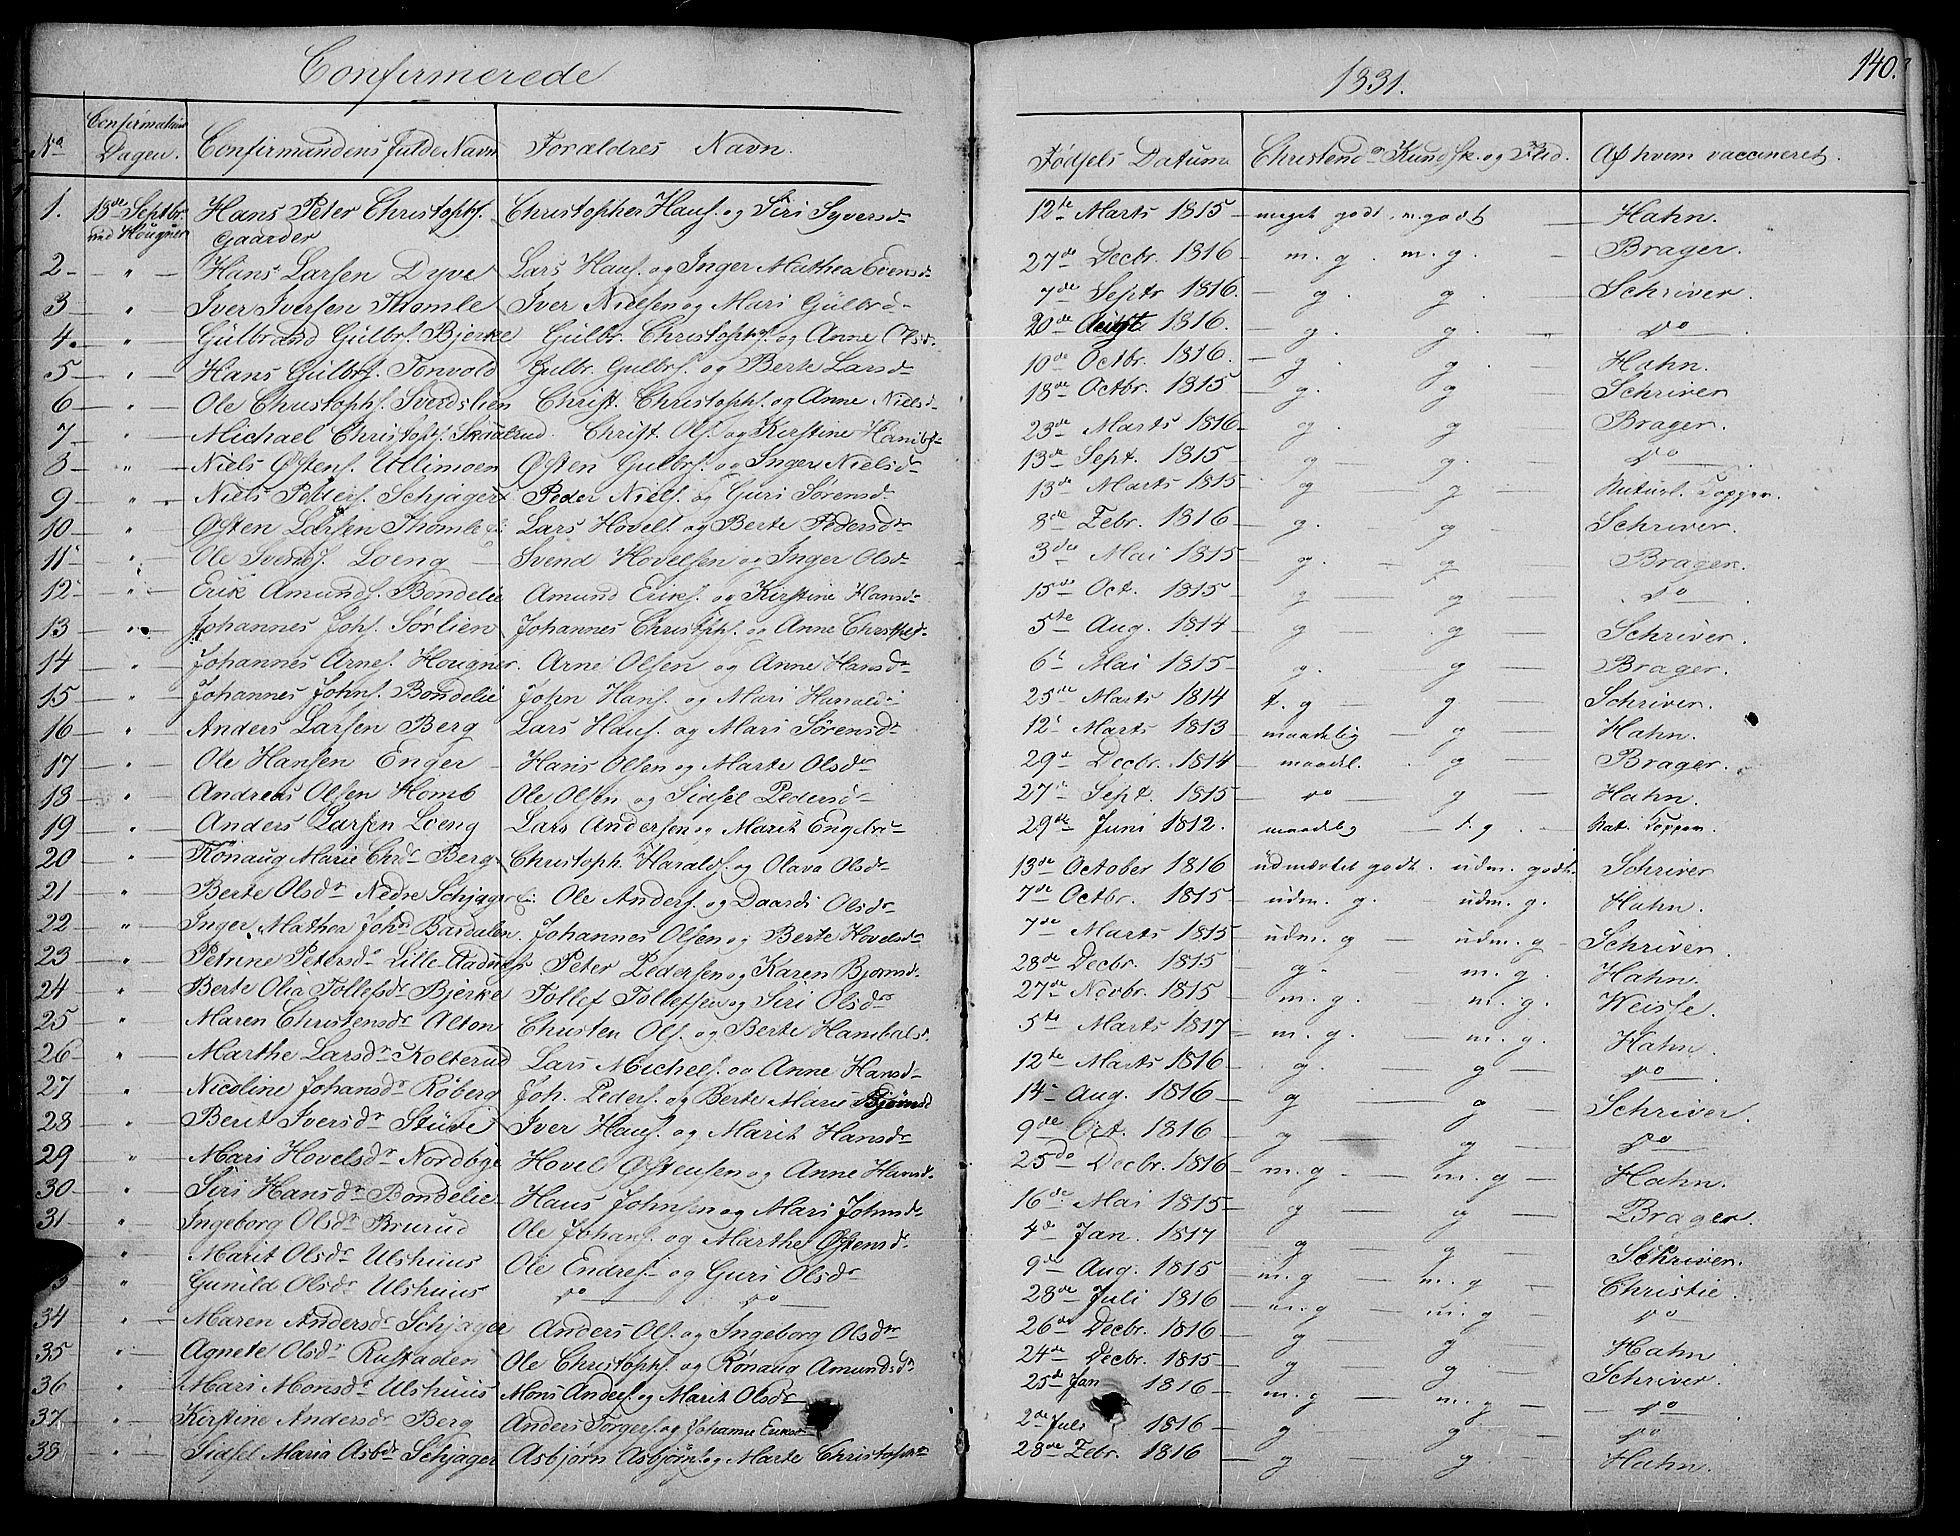 Confirmerede 1831. 140.
No Confirmations Dagen. Confirmandens fulde Navn Forældres Navn. Fødsels Datum Christend: Kundsk. og Flid. Af hvem vaccineret.
1. 18de Septbr. Hans Peter Christophs. Christopher Hans. og Siri Syversd. 12te Marts 1815 meget godt. m. godt Hahn.
ved Hougner Gaarder
2 " Hans Larsen Dyve Lars Hans. og Inger Mathea Evensd. 27de Decbr. 1816 m. g. m. g. Brager.
3 " Iver Iversen Thomle Iver Nielsen og Mari Gulbrd. 7de Septr 1816. g. g. Schriver.
4. " Gulbrand Gulbrs. Bjerke Gulbr. Christophs. og Anne Olsd. 20de Augt 1816. g. g. do
5 " Hans Gulbrs. Tonvold Gulbr. Gulbrs. og Berte Larsd. 10de Octbr. 1816. g g. Hahn.
6 " Ole Christophs. Sverdslien Christ. Christophs. og Anne Nielsd. 18de Octbr. 1815 g. g Schriver
7 " Michael Christophs. Christ. Ols. og Kirstine 23de Marts 1816 g. g Brager.
8 " Niels Østens. Ullimoen Østen Gulbrs. og Inger Nielsd. 13de Sept. 1815 g g. do
9 " Niels Peders. Schjager Peder Niels. og Guri Sørensd. 13de Marts 1815 g g Naturl. Kopper.
10 " Østen Larsen Thomle Lars Hovels. og Berte Pedersdr 8de Febr. 1816 g. g Schriver.
11 " Ole Svends. Loeng Svend Hovelsen og Inger Olsd. 3die Mai 1815 g. g Brager.
12 " Erik Amunds. Bondelie Amund Eriks. og Kirstine Hansd. 15de Oct. 1815 g g do
13 " Johannes Johs. Sørlien Johannes Christophs. og Anne 5te Aug. 1814 g g Schriver.
14 " Johannes Arnes. Hougner. Arne Olsen og Anne Hansdr 6t Mai 1815 g. g Brager.
15 " Johannes Johns. Bondelie John Hans. og Mari 25de Marts 1814 t. g g Schriver.
16 " Anders Larsen Berg Lars Hans. og Mari Sørensdr 12t Marts 1813 maadelig g Hahn.
17 " Ole Hansen Enger Hans Olsen og Marte Olsdr 29d Decbr. 1814 maadel. g Brager.
18 " Andreas Olsen Homb Ole Olsen og Sidsel Pedersd. 27de Sept. 1815 do g Hahn.
19 " Anders Larsen Loeng Lars Andersen og Marit 29de Juni 1812. maadelig t. g. Nat. Kopper.
20 " Rønaug Marie Chrdr Berg Christoph. Haralds. og Olava Olsdr 13de October 1816 udmærket godt. udm. godt. Schriver
21 " Berte Olsdr Nedre Schjager Ole Anders. og Daardi Olsdr 7de Octbr. 1815 udm. g. udm. g. Hahn.
22 " Inger Mathea Johdr Bardalen. Johannes Olsen og Berte Hovelsdr 7de Marts 1815 udm. g udm. g Schriver.
23 " Petrine Petersdr Lille Peter Pedersen og Karen Bjørnsd. 28de Decbr. 1815 g. m. g. Hahn.
24 " Berte Olia Tollefsdr Bjerke Tollef Tollefsen og Siri Olsdr 27de Novbr. 1815 m. g. m. g. Weisse.
25 " Maren Christensdr Alton Christen Ols. og Berte Hambals 5te Marts 1817 m. g. m. g. Hahn.
26 " Marthe Larsdr Kolterud Lars Michels. og Anne Hansd. 12te Marts 1816 g. g do
27 " Nicoline Johansdr Røberg Joh. Peders. og Berte Marie Bjørnsd 14. Aug. 1816 g g Schriver.
28 " Berit Iversdr Stuve Iver Hans. og Marit Hansdr 9de Oct. 1816 g g do
29 " Mari Hovelsdr Nordbye Hovel Østensen og Anne Hansd. 25do Decbr. 1816 m. g m. g Hahn.
30 " Siri Hansdr Bondelie Hans Johnsen og Mari Johnsd. 16de Mai 1815 g g Brager.
31 " Ingeborg Olsdr Brurud Ole Johans. og Marthe Østensd. 4de Jan. 1817 g g Schriver.
" Marit Olsdr Ulshuus Ole Endres. og Guri Olsdr 9de Aug. 1815 m. g m. g Christie.
3 " Gunild Olsdr Ulshuus do do 28de Juli 1816 m. g m. g do
34 " Maren Andersdr Schjager Anders Ols. og Ingeborg Olsdr 26de Decbr. 1816 g g Hahn
35 " Agnete Olsdr Rustaden Ole Christophs. og Rønaug Amundsdr 24de Decbr. 1815 g g Schriver.
36 " Mari Monsdr Ulshuus Mons Anders. og Marit Olsdr 25de Jan 1816 m. g m. g do
37 " Kirstine Andersdr Berg Anders Torgers. og Johanne 2de Juli 1816 g g do
38 " Sidsel Maria Asbdr Schjager Asbjørn Asbjørns. og Marte Christophdr 28de Febr. 1816 g g. Hahn.